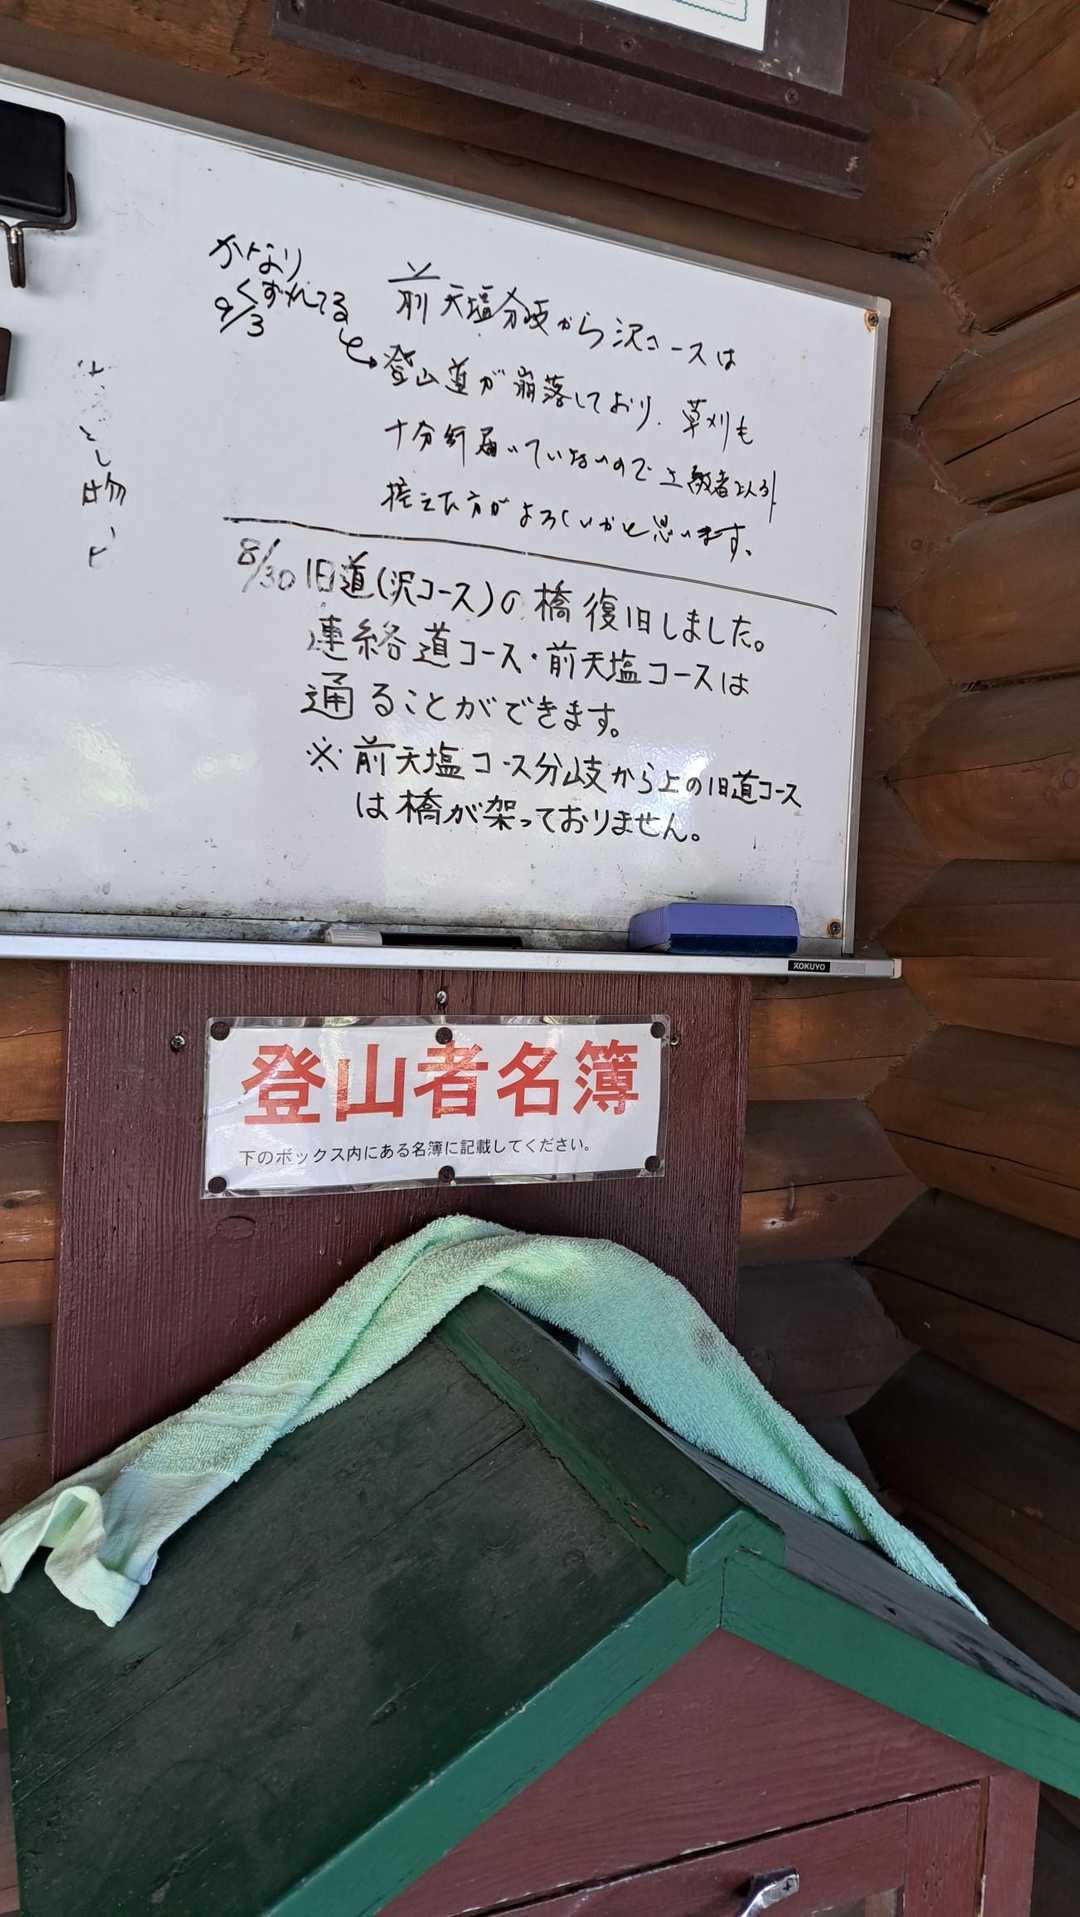 かなり
くずれてる
9/3
前天塩分岐から沢コースは
登山道が崩落しており、草刈も
十分行届いていないので上級者以外
控えた方がよろしいかと思います。
8/30 旧道(沢コース)の橋復旧しました。
連絡道コース・前天塩コースは
通ることができます。
※前天塩コース分岐から上の旧道コース
は橋が架っておりません。
とし物
KOKUYO
登山者名簿
下のボックス内にある名簿に記載してください。